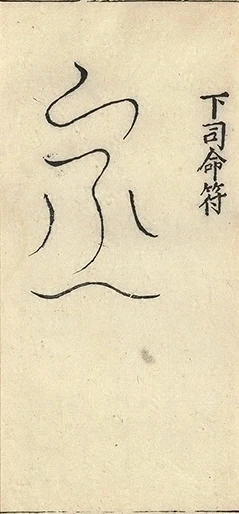 下司命符